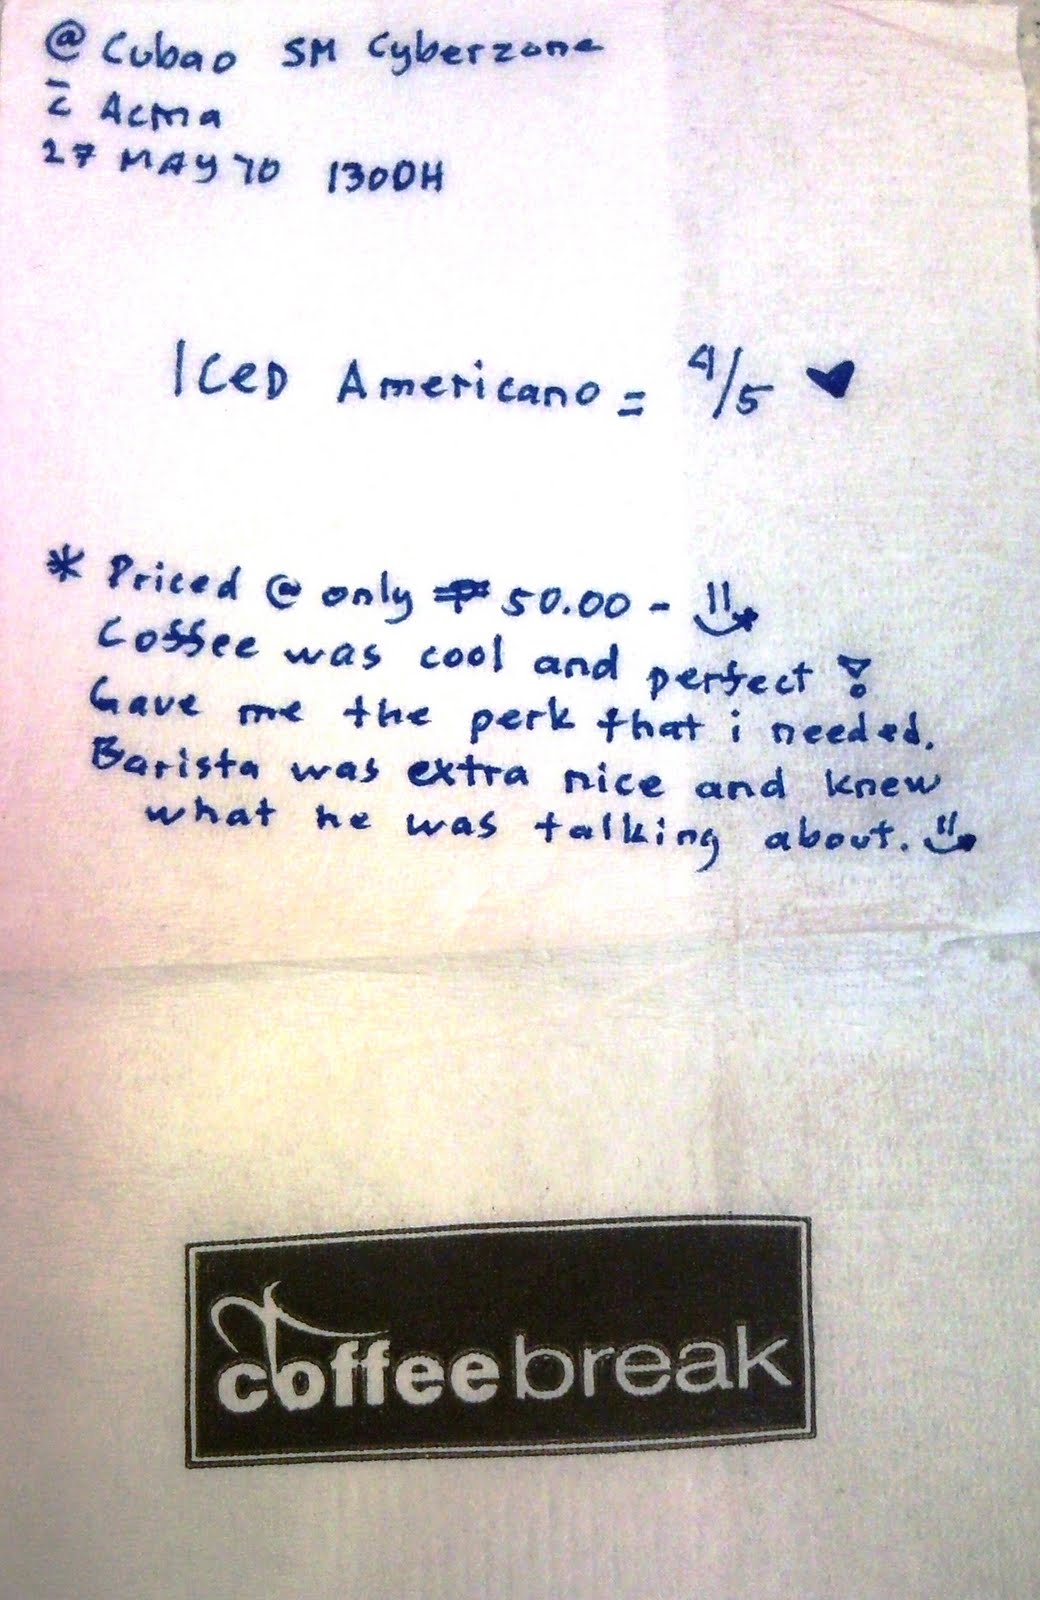 @ Cubao SM Cyberzone
c̄ Acma
27 MAY 10 1300H
Iced Americano = 4/5 ♥
* Priced @ only ₱ 50.00 -
Coffee was cool and perfect!
Gave me the perk that i needed.
Barista was extra nice and knew
what he was talking about.
coffeebreak